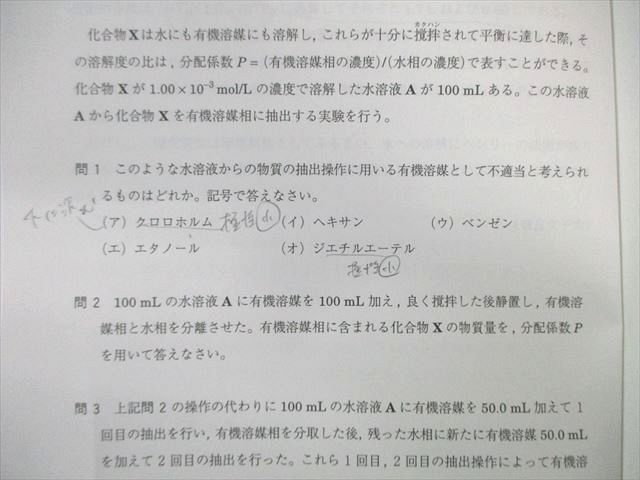 カクハン
化合物Xは水にも有機溶媒にも溶解し，これらが十分に攪拌されて平衡に達した際，そ
の溶解度の比は，分配係数 P＝(有機溶媒相の濃度)/(水相の濃度)で表すことができる。
化合物 X が 1.00×10⁻³ mol/L の濃度で溶解した水溶液 A が 100 mL ある。この水溶液
A から化合物 X を有機溶媒相に抽出する実験を行う。
問1 このような水溶液からの物質の抽出操作に用いる有機溶媒として不適当と考えられ
るものはどれか。記号で答えなさい。
(ア) クロロホルム 極性小 (イ) ヘキサン (ウ) ベンゼン
(エ) エタノール (オ) ジエチルエーテル
極性小
問2 100 mL の水溶液 A に有機溶媒を 100 mL 加え，良く攪拌した後静置し，有機溶
媒相と水相を分離させた。有機溶媒相に含まれる化合物 X の物質量を，分配係数 P
を用いて答えなさい。
問3 上記問2の操作の代わりに 100 mL の水溶液 A に有機溶媒を 50.0 mL 加えて1
回目の抽出を行い，有機溶媒相を分取した後，残った水相に新たに有機溶媒 50.0 mL
を加えて2回目の抽出を行った。これら1回目，2回目の抽出操作によって有機溶